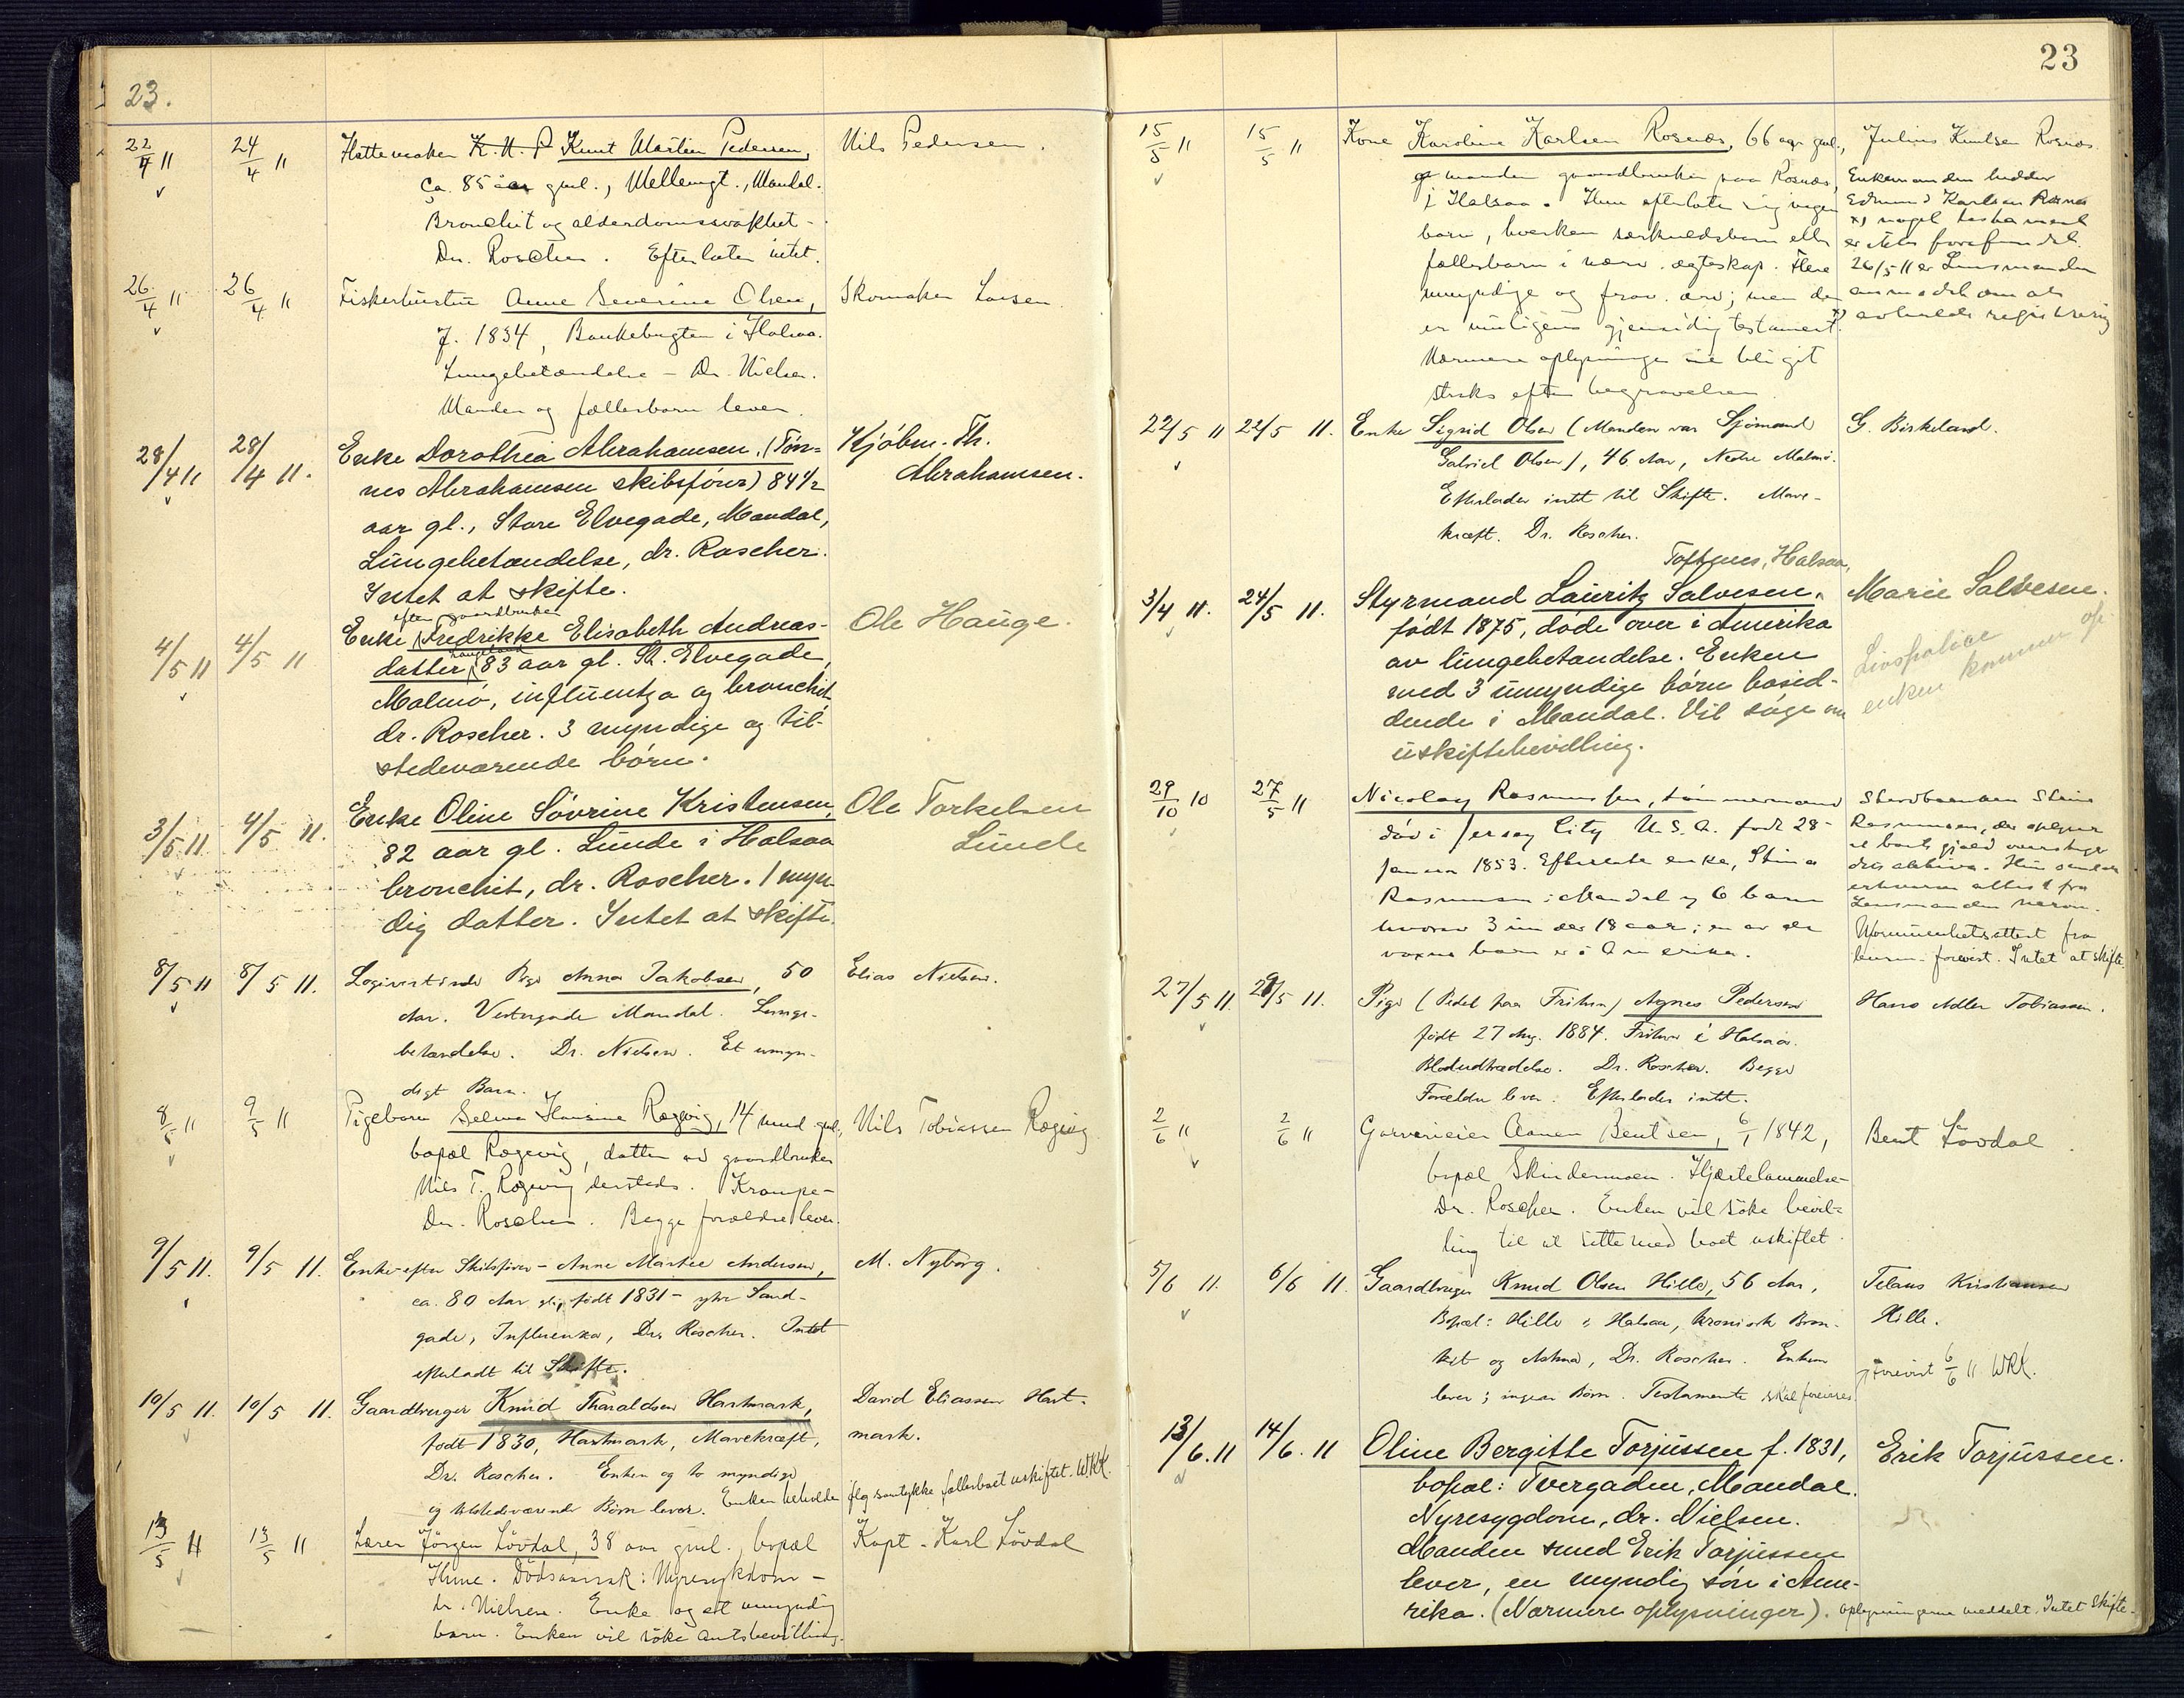 23.
22/4 11 24/4 11 Hattemaker K. M. P Knut Martin Pedersen, Nils Pedersen.
ca. 85 aar gml., Mellemgt., Mandal.
Bronchit og alderdomssvakhet -
Dr. Roscher. Efterlater intet.
26/4 11 26/4 11 Fiskerhustru Anne Severine Olsen, Skomaker Larsen.
f. 1834, Bankebugten i Halsaa.
Lungebetændelse - Dr. Nielsen.
Manden og fællesbarn lever.
28/4 11 28/4 11. Enke Dorothea Abrahamsen, (Tøn- Kjøbm. Th.
nes Abrahamsen skibsfører) 84 1/2 Abrahamsen.
aar gl., Store Elvegade, Mandal,
Lungebetændelse, dr. Roscher.
Intet at skifte.
efter gaardbruker
4/5 11 4/5 11 Enke Fredrikke Elisabeth Andreas- Ole Hauge.
datter, 83 aar gl. St. Elvegade,
Malmø, influentza og bronchit,
dr. Roscher. 3 myndige og til-
stedeværende børn.
3/5 11 4/5 11. Enke Oline Søvrine Kristensen, Ole Torkelsen
82 aar gl. Lunde i Halsaa Lunde
bronchit, dr. Roscher. 1 myn-
dig datter. Intet at skifte.
8/5 11 8/5 11. Logivertinde Pige Anna Jakobsen, 50 Elias Nielsen.
Aar. Vestergade Mandal. Lunge-
betændelse. Dr. Nielsen. Et umyn-
digt Barn.
8/5 11 9/5 11 Pigebarn Selma Hansine Rægevig, 14 mnd gml, Nils Tobiassen Rægevig
bopæl Rægevig, datter av gaardbruker
Nils T. Rægevig dersteds. Krampe -
Dr. Roscher. Begge forældre lever.
9/5 11. 9/5 11. Enke efter Skibsfører - Anne Marthe Andersen, M. Nyborg.
ca. 80 Aar gl., født 1831 - ytre Sand-
gade, Influenza, Dr. Roscher. Intet
efterladt til Skifte.
10/5 11. 10/5 11. Gaardbruger Knud Tharaldsen Hartmark, David Eliassen Hart-
født 1830, Hartmark, Mavekræft, mark.
Dr. Roscher. Enken og to myndige
og tilstedeværende Børn lever. Enken beholder ifølg samtykke fællesboet uskiftet. WKK.
13/5 11 13/5 11 Lærer Jörgen Lövdal, 38 aar gml., bopæl Kapt. Karl Lövdal
Hume. Dödsaarsak: Nyresykdom -
Dr. Nielsen. Enke og et umyndig
barn. Enken vil söke amtsbevilling.
23
15/5 11 15/5 11 Kone Karoline Karlsen Rosnæs, 66 aar gml., Julius Knutsen Rosnæs.
manden gaardbruker paa Rosnæs, Enkemanden hedder
i Halsaa. Hun efterlater sig ingen Edmund Karlsen Rosnes
barn, hverken særkuldsbarn eller x) nogel testament
fællesbarn i nærv. ægteskap. Flere er ikke forefundet.
umyndige og frav. arv; men der 26/5 11 er Lensmanden
er muligens gjensidig testament. x) anmodet om at
Nærmere oplysninger vil bli git avholde registrering
straks efter begravelsen.
22/5 11 22/5 11. Enke Sigrid Olsen (Manden var Sjömand G. Birkeland.
Gabriel Olsen), 46 Aar, Nedre Malmö.
Efterlader intet til Skifte. Mave-
kræft. Dr. Roscher.
Toftenes, Halsaa,
3/4 11. 24/5 11. Styrmand Lauritz Salvesen, Marie Salvesen.
født 1875, døde over i Amerika
av lungebetændelse. Enken Livspolice
med 3 umyndige børn bosid- enken kommer op
dende i Mandal. Vil søge om
uskiftebevilling.
29/10 10 27/5 11 Nicolay Rasmussen, tömmermand
död i Jersey City U.S.A. född 28-
Januar 1853. Efterlate enke, Stina Rasmussen, der oplyser
Rasmussen i Mandal og 6 barn
hvorav 3 under 18 aar; en av de
voxne barn er i Amerika. Intet at skifte.
27/5 11. 29/5 11. Pige (Pedel paa Frihen) Agnes Pedersen Hans Adler Tobiassen.
født 27 Aug. 1884. i Halsaa.
Blodudtrædelse. Dr. Roscher. Begge
Forældre lever. Efterlader intet.
2/6 11 2/6 11 Garverieier Aanen Bentsen, 6/1 1842, Bent Lövdal
bopæl Skindermoen. Hjærtelammelse -
Dr. Roscher. Enken vil söke bevil-
ling til at sitte med boet uskiftet.
5/6 11. 6/6 11. Gaardbruger Knud Olsen Hille, 56 Aar, Kristiansen
Bopæl: Hille i Halsaa, kronisk Bron- Hille.
kit og Astma, Dr. Roscher. Enken
lever; ingen Børn. Testamente skal forevises. Forevist 6/6 11 WKK.
13/6. 11 14/6. 11 Oline Bergitte Torjussen f. 1831, Erik Torjussen.
bopæl: Tvergaden, Mandal.
Nyresygdom, dr. Nielsen.
Manden smed Erik Torjussen
lever, en myndig søn i Ame-
rika. (Nærmere oplysninger). Oplysningerne meddelt. Intet skifte.